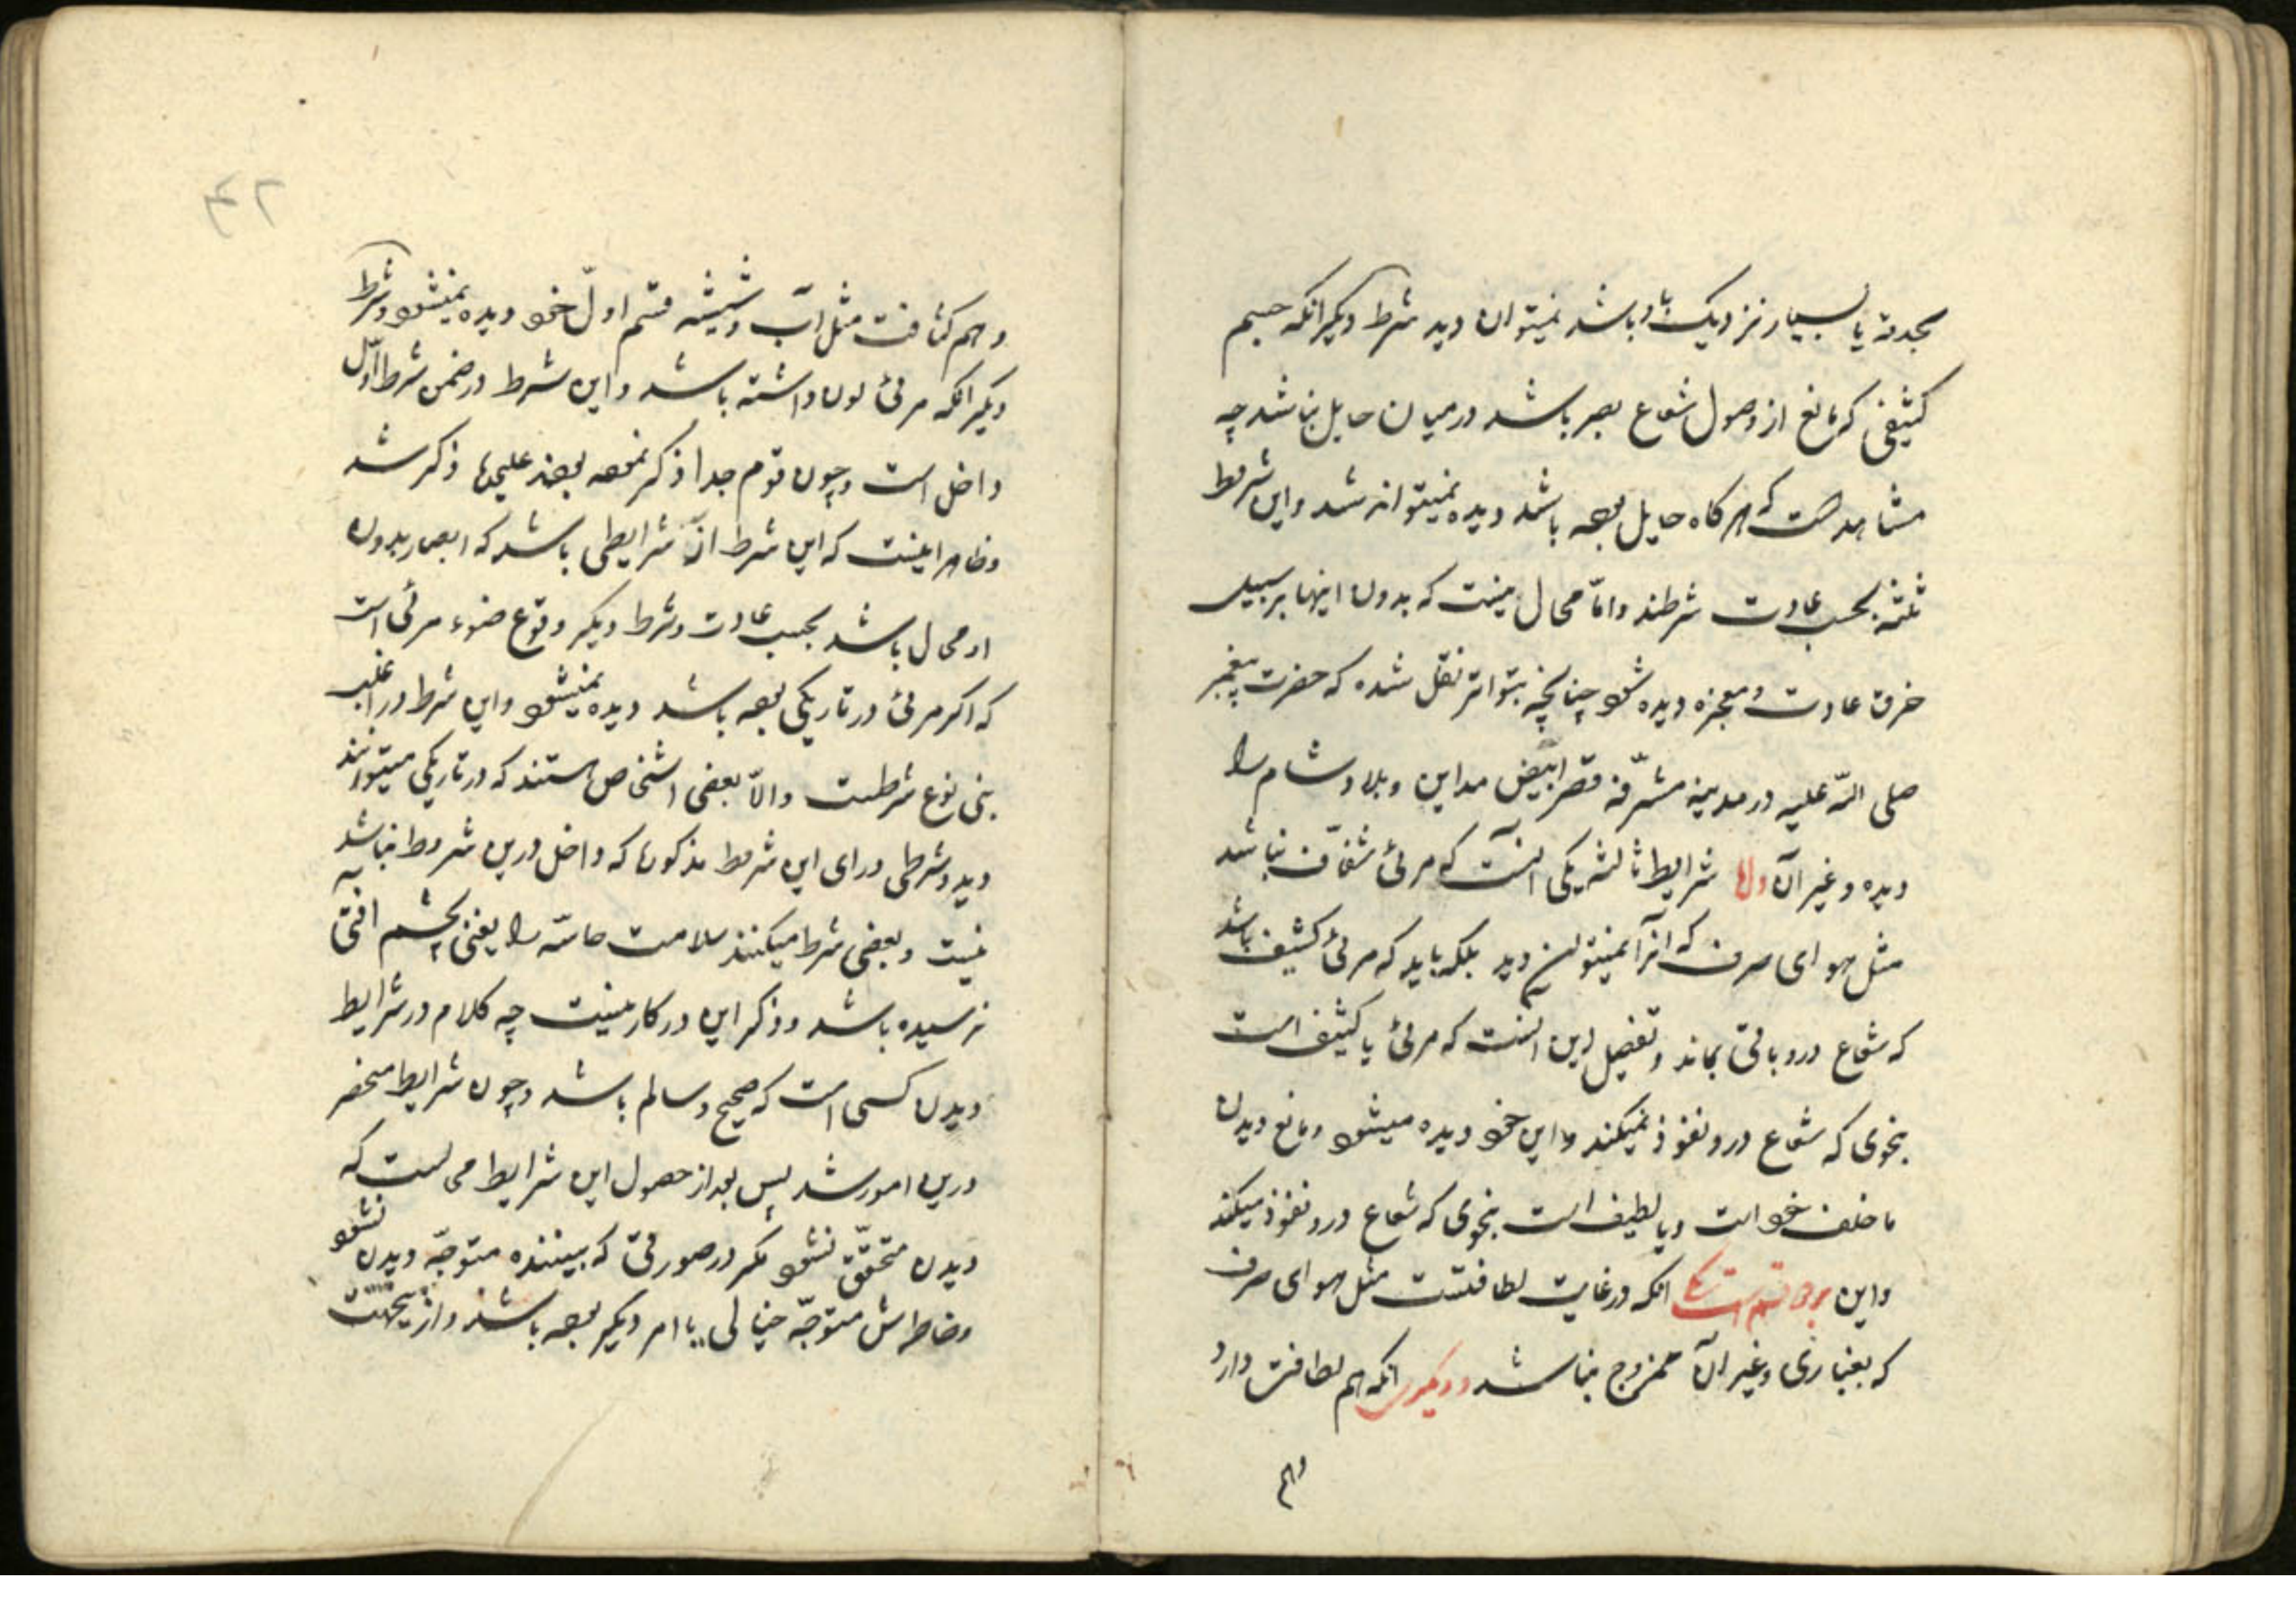 بحدقه یا بسیار نزدیک باو باشد نمیتوان دید شرط دیگر انکه جسم
کثیفی که مانع از وصول شعاع بصر باشد در میان حایل نباشد چه
مشاهد است که هرکاه حایل بوده باشد دیده نمیتواند شد و این شروط
ثلثه بحسب عادت شرطند و امّا محال نیست که بدون اینها بر سبیل
خرق عادت و معجزه دیده شود چنانچه بتواتر نقل شده که حضرت پیغمبر
صلی اللّه علیه در مدینه مشرّفه قصر ابیض مداین و بلاد شام را
دیده و غیر آن و امّا شرایط ثالثه یکی انست که مرئی شفّاف نباشد
مثل هوای صرف که انرا نمیتوان دید بلکه باید که مرئی کثیف باشد
که شعاع درو باقی بماند و تفصیل این انست که مرئی یا کثیف است
بنحوی که شعاع درو نفوذ نمیکند و این خود دیده میشود و مانع دیدن
ما خلف خود است و یا لطیف است بنحوی که شعاع درو نفوذ میکند
و این بر دو قسم است یکی انکه در غایت لطافتست مثل هوای صرف
که بغباری و غیر آن ممزوج نباشد و دیگری انکه هم لطافت دارد
و هم
۴۲
و هم کثافت مثل آب و شیشه قسم اوّل خود دیده نمیشود و شرط
دیگر انکه مرئی لون داشته باشد و این شرط در ضمن شرط اوّل
داخل است و چون قوم جدا ذکر نموده بودند علیحده ذکر شد
و ظاهر اینست که این شرط از شرایطی باشد که ابصار بدون
او محال باشد بحسب عادت و شرط دیگر وقوع ضوء مرئی است
که اکر مرئی در تاریکی بوده باشد دیده نمیشود و این شرط در اغلب
بنی نوع شرطست و الّا بعضی اشخاص هستند که در تاریکی میتوانند
دید و شرطی ورای این شروط مذکوره که داخل درین شروط نباشد
نیست و بعضی شرط میکنند سلامت حاسّه را یعنی بچشم افتی
نرسیده باشد و ذکر این در کار نیست چه کلام در شرایط
دیدن کسی است که صحیح و سالم باشد و چون شرایط منحصر
درین امور شد پس بعد از حصول این شرایط محالست که
دیدن متحقّق نشود مکر در صورتی که بیننده متوجّه دیدن نشود
و خاطرش متوجّه خیالی یا امر دیگر بوده باشد و ازینجهت